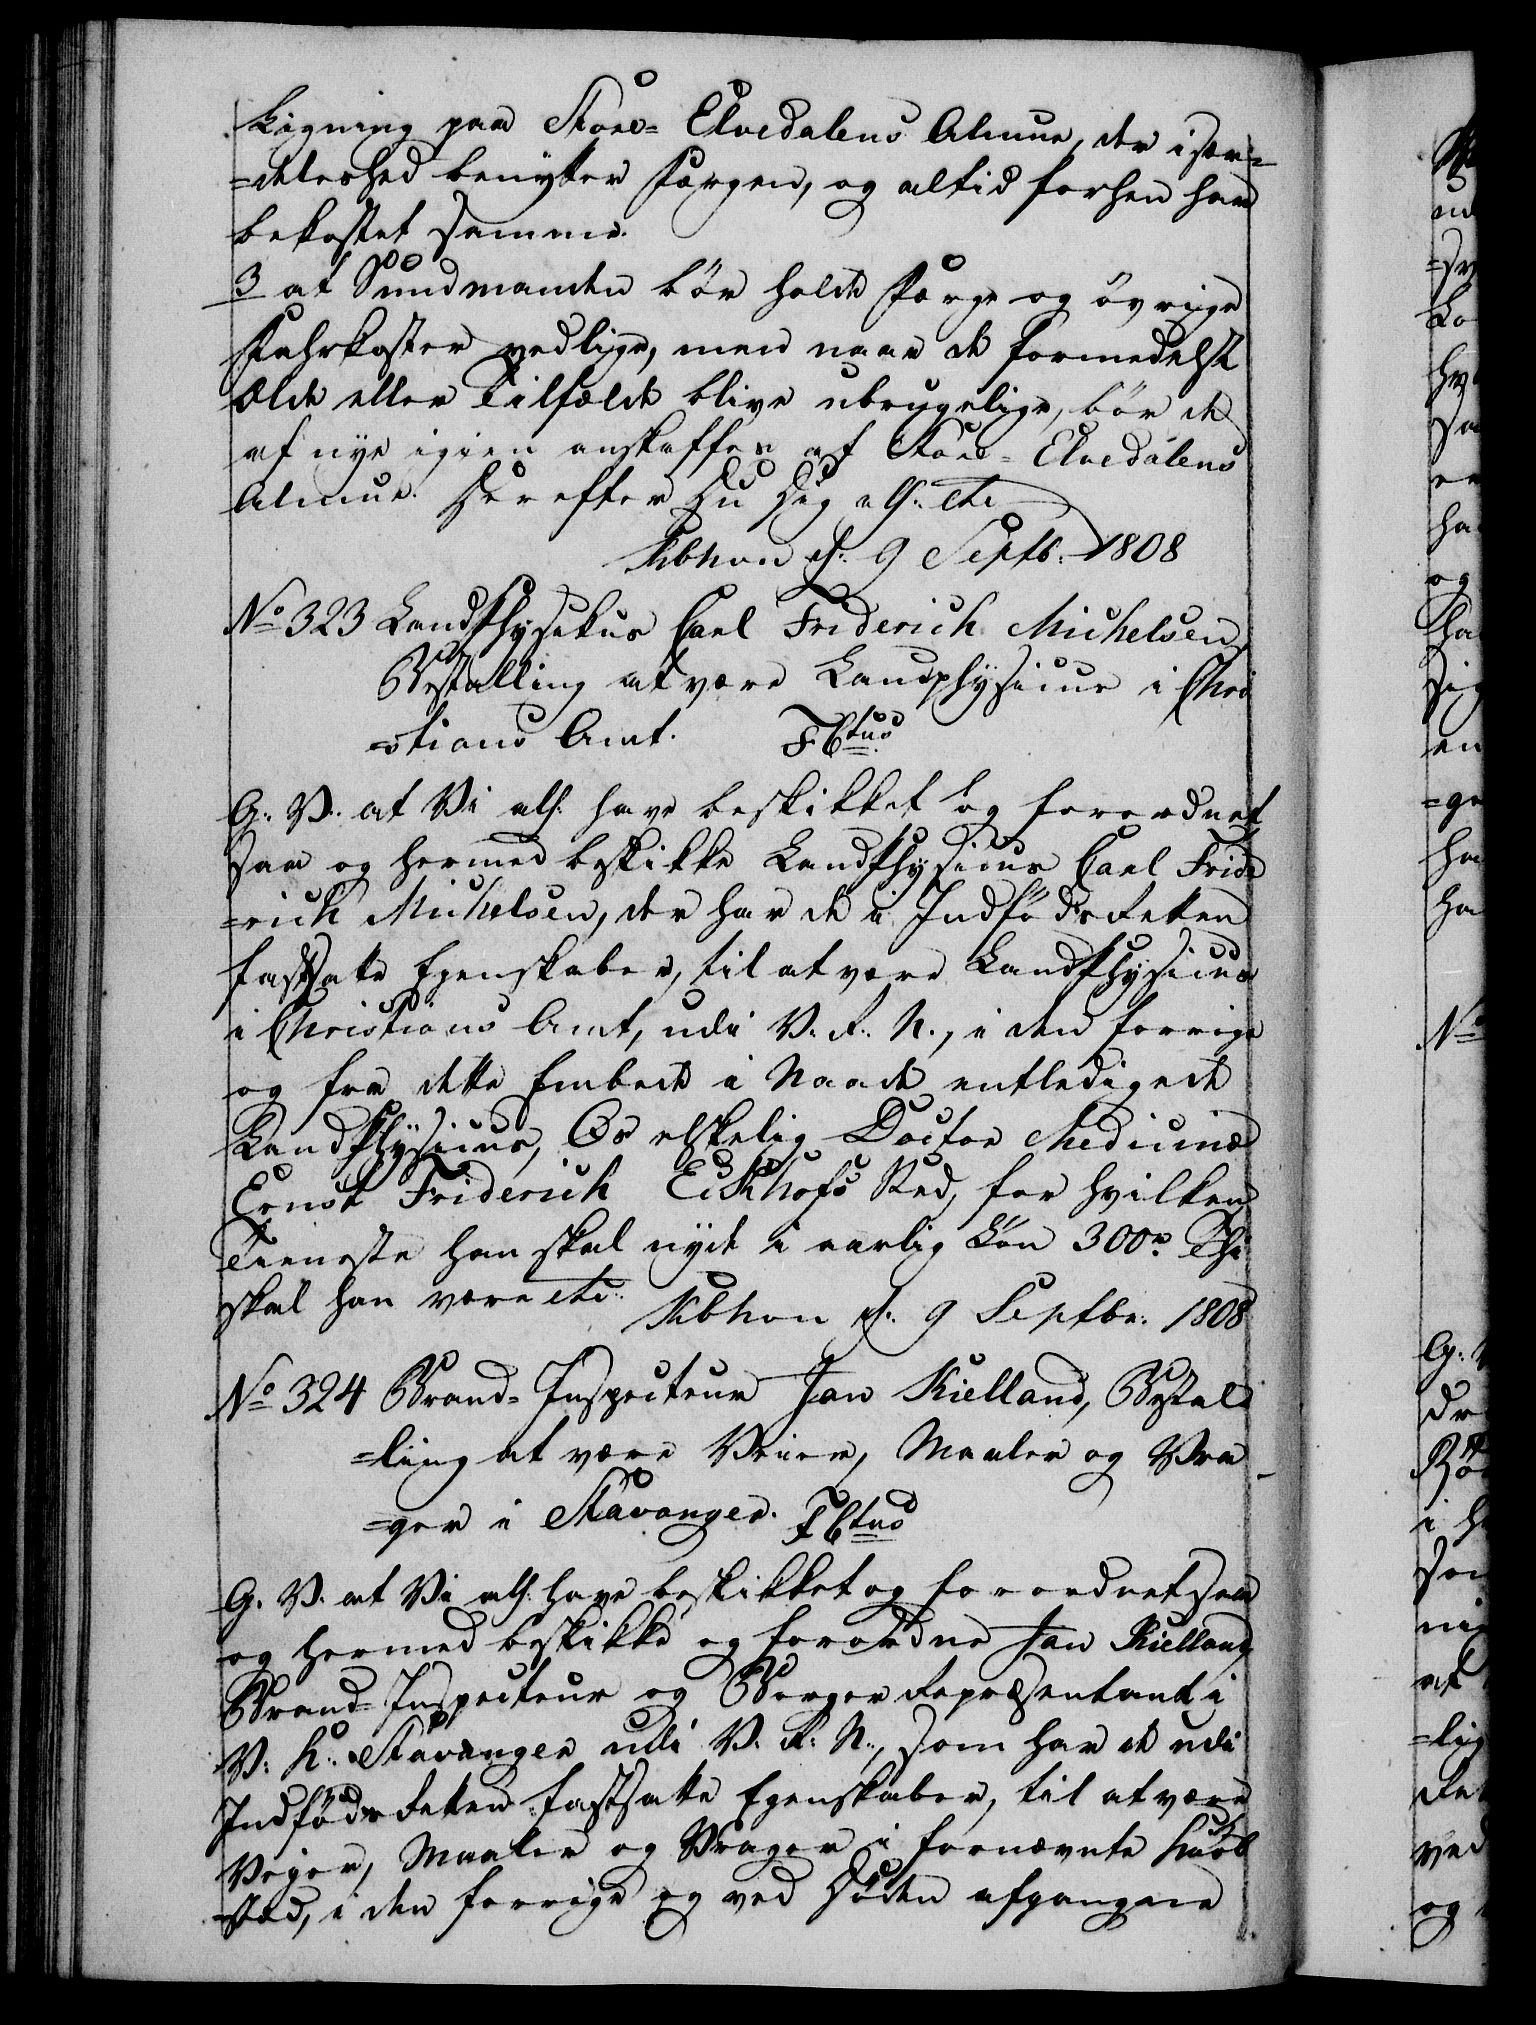 Ligning paa Store= Elvedalens Almue, der i sær=
=deleshed benytter Færgen, og altid forhen har
bekostet samme.
3 at Sundmanden bör holde Færge og övrige
Fahrkoster vedlige, men naar de formedelst
Ælde eller Tilfælde blive ubrugelige, bör de
af nye igien anskaffes af Store= Elvedalens
Almue. Herefter Du Dig alh: etc
Kbhvn d: 9 Septb: 1808
No 323 Landphysikus Carl Friderich Michelsen
Bestalling at være Landphysicus i Chri
=stians Amt. FCtus
G: V: at Vi alh: have beskikket og forordnet
saa og hermed beskikke Landphysicus Carl Fride
=rich Michelsen, der har de i Indfödsretten
fastsatte Egenskaber, til at være Landphysicus
i Christians Amt, udi V. R. N., i den forrige
og fra dette Embede i Naade entledigede
Landphysicus, Os elskelig Doctor Medicinæ
Ernst Friderich Eckhofs Sted, for hvilken
Tieneste han skal nyde i aarlig Lön 300 rd. Thi
skal han være etc:
Kbhvn d: 9 Septbr: 1808
No 324 Brand= Inspecteur Jan Kielland, Bestal
=ling at være Veier, Maaler og Vra
=ger i Stavanger. FCtus
G. V. at Vi alh: have beskikket og forordnet saa
og hermed beskikke og forordne Jan Kielland
Brand= Inspecteur og Borger Repræsentant i
V: K: Stavanger udi V. R: N., som har de udi
Indföds Retten fastsatte Egenskaber, til at være
Veyer, Maaler og Vrager i fornævnte Kiöb
=stad, i den forrige og ved Döden afgangne